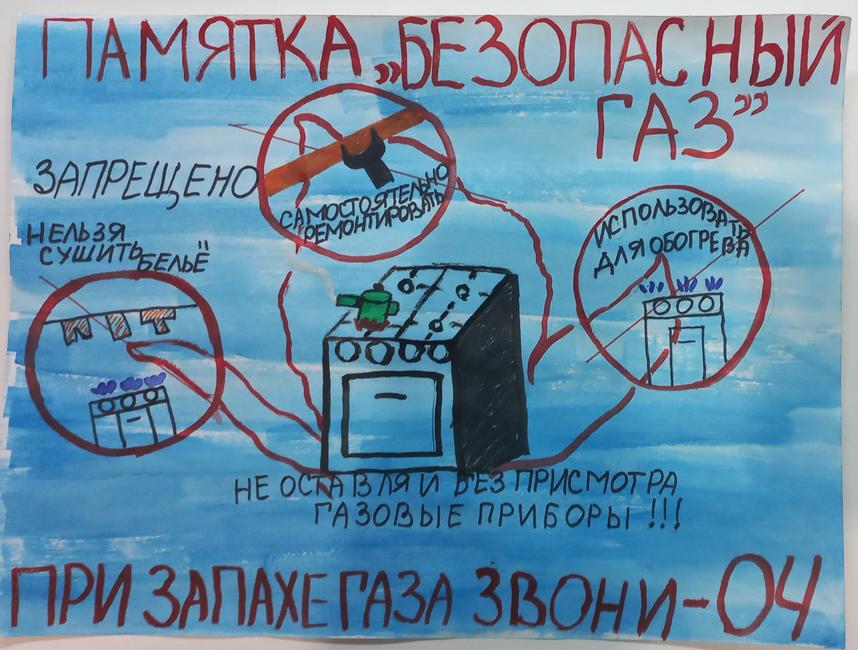 ПАМЯТКА „БЕЗОПАСНЫЙ
ГАЗ”
ЗАПРЕЩЕНО
САМОСТОЯТЕЛЬНО
РЕМОНТИРОВАТЬ
НЕЛЬЗЯ
СУШИТЬ БЕЛЬЁ
ИСПОЛЬЗОВАТЬ
ДЛЯ ОБОГРЕВА
НЕ ОСТАВЛЯЙ БЕЗ ПРИСМОТРА
ГАЗОВЫЕ ПРИБОРЫ !!!
ПРИ ЗАПАХЕ ГАЗА ЗВОНИ-04